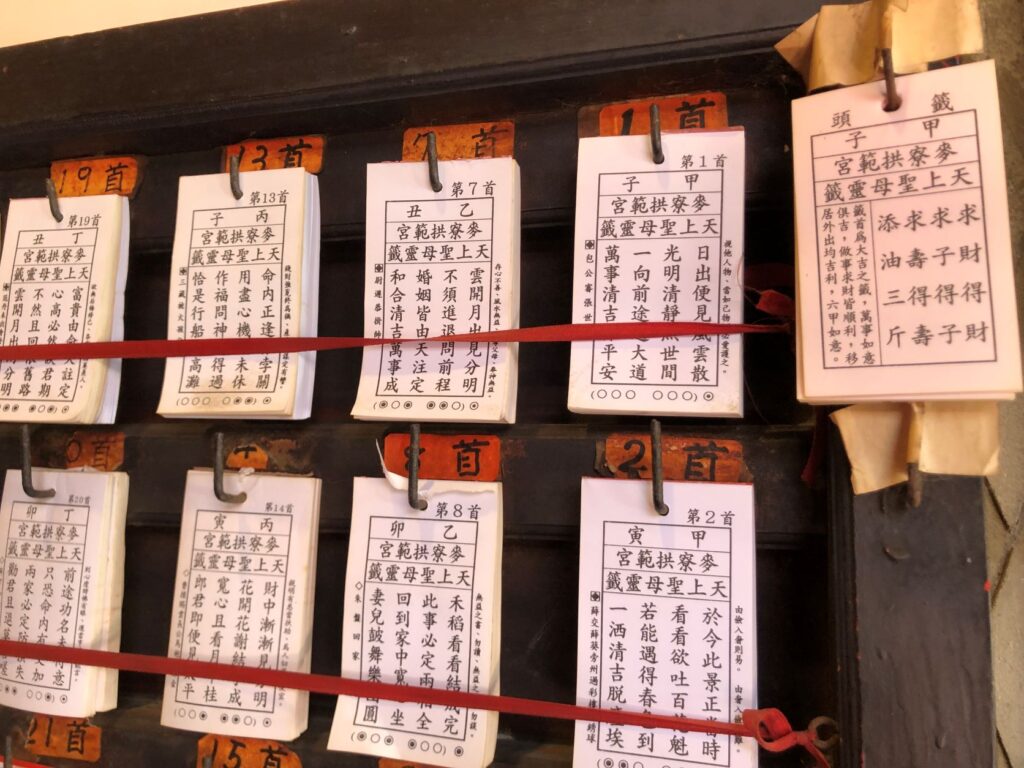 籤頭
甲子
麥寮拱範宮
天上聖母靈籤
求財得財
求子得子
求壽得壽
添油三斤
籤首為大吉之籤，萬事如意
俱吉，做事求財皆順利，移
居外出均吉利，六甲如意。
1首
第1首
甲子
麥寮拱範宮
天上聖母靈籤
日出便見風雲散
光明清靜照世間
一向前途大道
萬事清吉平安
包公審張世
7首
第7首
乙丑
麥寮拱範宮
天上聖母靈籤
雲開月出見分明
不須進退問前程
婚姻皆由天注定
和合清吉萬事成
13首
第13首
丙子
麥寮拱範宮
天上聖母靈籤
命內正逢李關
用盡心機未休
作福問神得過
恰是行船高灘
19首
第19首
丁丑
麥寮拱範宮
天上聖母靈籤
富貴由命天註定
心高必然君期
不然且回舊路
雲開月出分明
2首
第2首
甲寅
麥寮拱範宮
天上聖母靈籤
於今此景正當時
看看欲吐百魁
若能遇得春到
一洒清吉脫埃
薛交薛葵旁州過彩樓繡球
8首
第8首
乙卯
麥寮拱範宮
天上聖母靈籤
禾稻看看結成完
此事必定兩相全
回到家中寬坐
妻兒鼓舞樂團圓
朱盤回家
第14首
丙寅
麥寮拱範宮
天上聖母靈籤
財中漸漸見明
花開花謝結成
寬心且看月桂
郎君即便見平
第20首
丁卯
麥寮拱範宮
天上聖母靈籤
前途功名未得意
只恐命內有加
兩家必定防
勸君且退
21首
15首